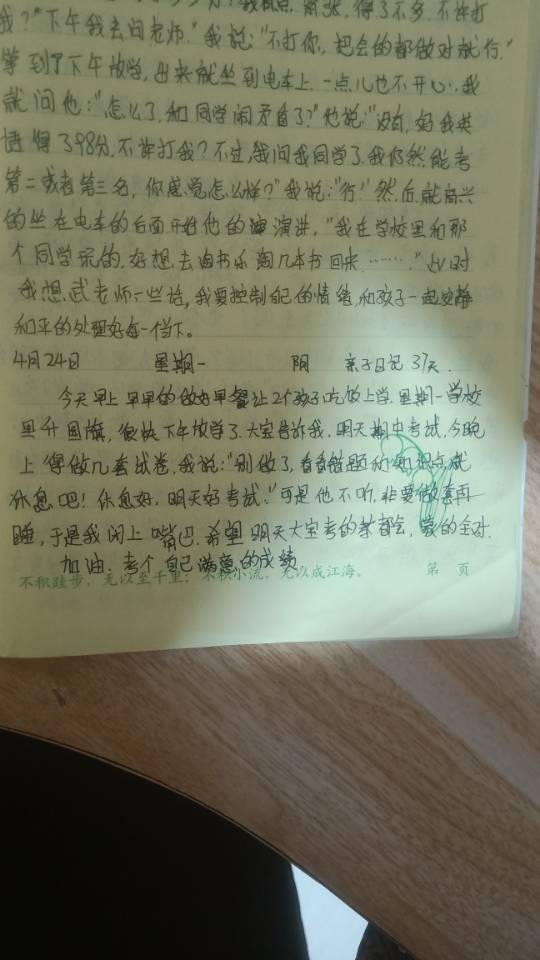 我有点紧张，得了不多，不许打
我？"下午我去问老师."我说："不打你，把会的都做对就行."
等到了下午放学，出来就坐到电车上，一点儿也不开心，我
就问他："怎么了，和同学闹矛盾了？"他说："没有，妈我英
语得了98分，不许打我？不过，我问我同学了，我仍然能考
第二或者第三名，你感觉怎么样？"我说："行！"然后就高兴
的坐在电车的后面开始他的演讲，"我在学校里和那
个同学玩的，好想去淘书乐淘几本书回来……"此时
我想武老师一些话，我要控制自己的情绪，和孩子一起安静
和平的处理好每一个当下。
4月24日 星期一 阴 亲子日记 37天.
今天早上早早的做好早餐让2个孩子吃饭上学.星期一学校
里升国旗，很快下午放学了.大宝告诉我，明天期中考试，今晚
上得做几套试卷，我说："别做了，看看错题和知识点，就
休息吧！休息好，明天好考试."可是他不听，非要做套再
睡，于是我闭上嘴巴.希望明天大宝考的都会，蒙的全对.
加油.考个自己满意的成绩
不积跬步，无以至千里；不积小流，无以成江海。 第 页